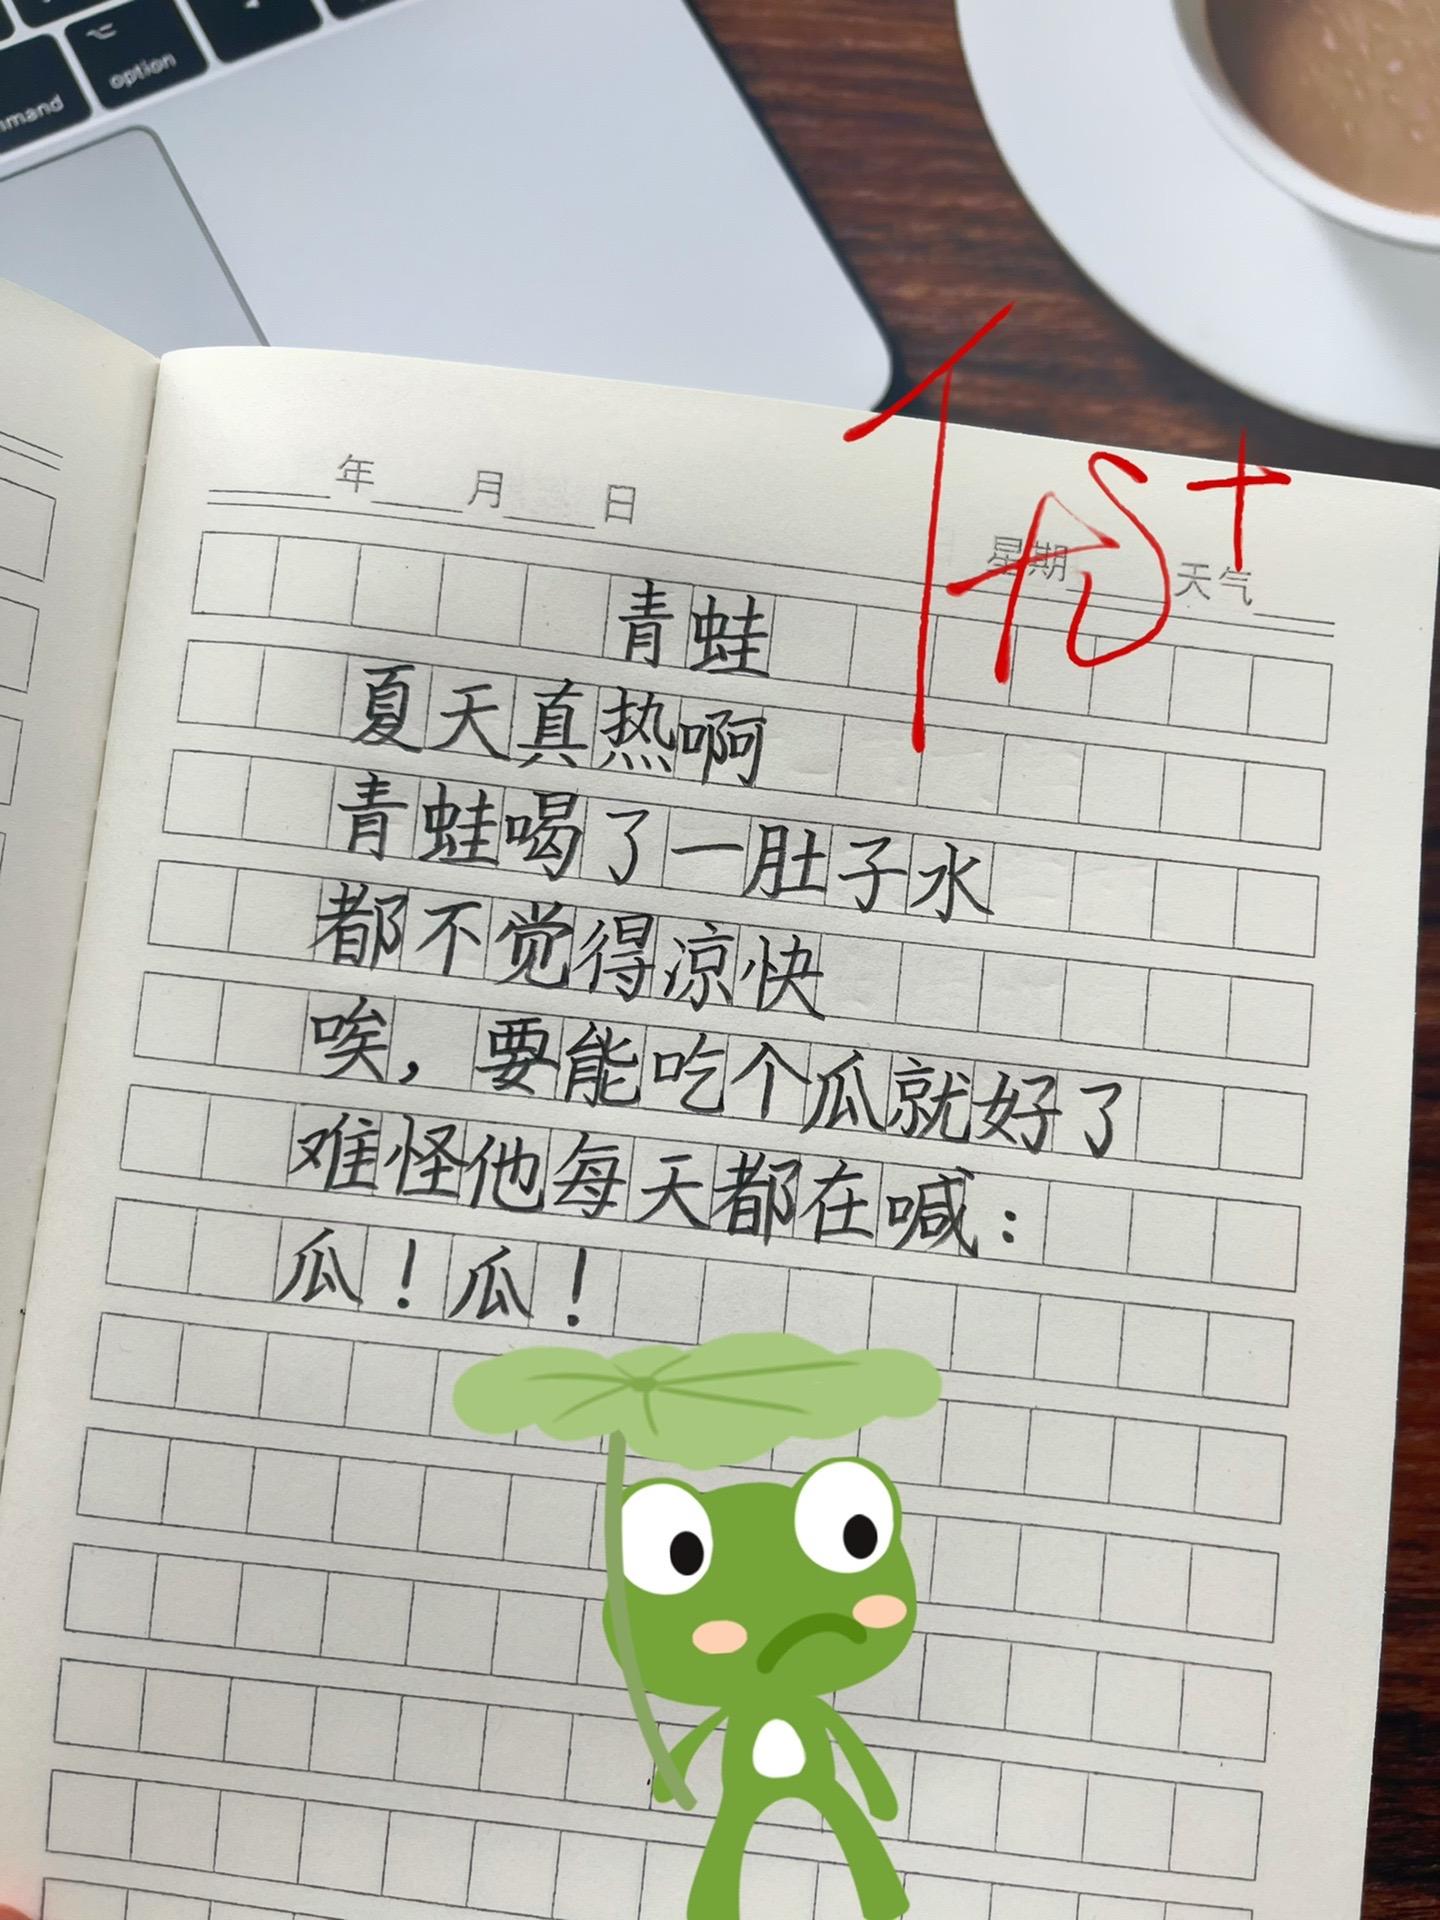 option
mmand
年 月 日
星期 天气
青蛙
夏天真热啊
青蛙喝了一肚子水
都不觉得凉快
唉，要能吃个瓜就好了
难怪他每天都在喊：
瓜！瓜！